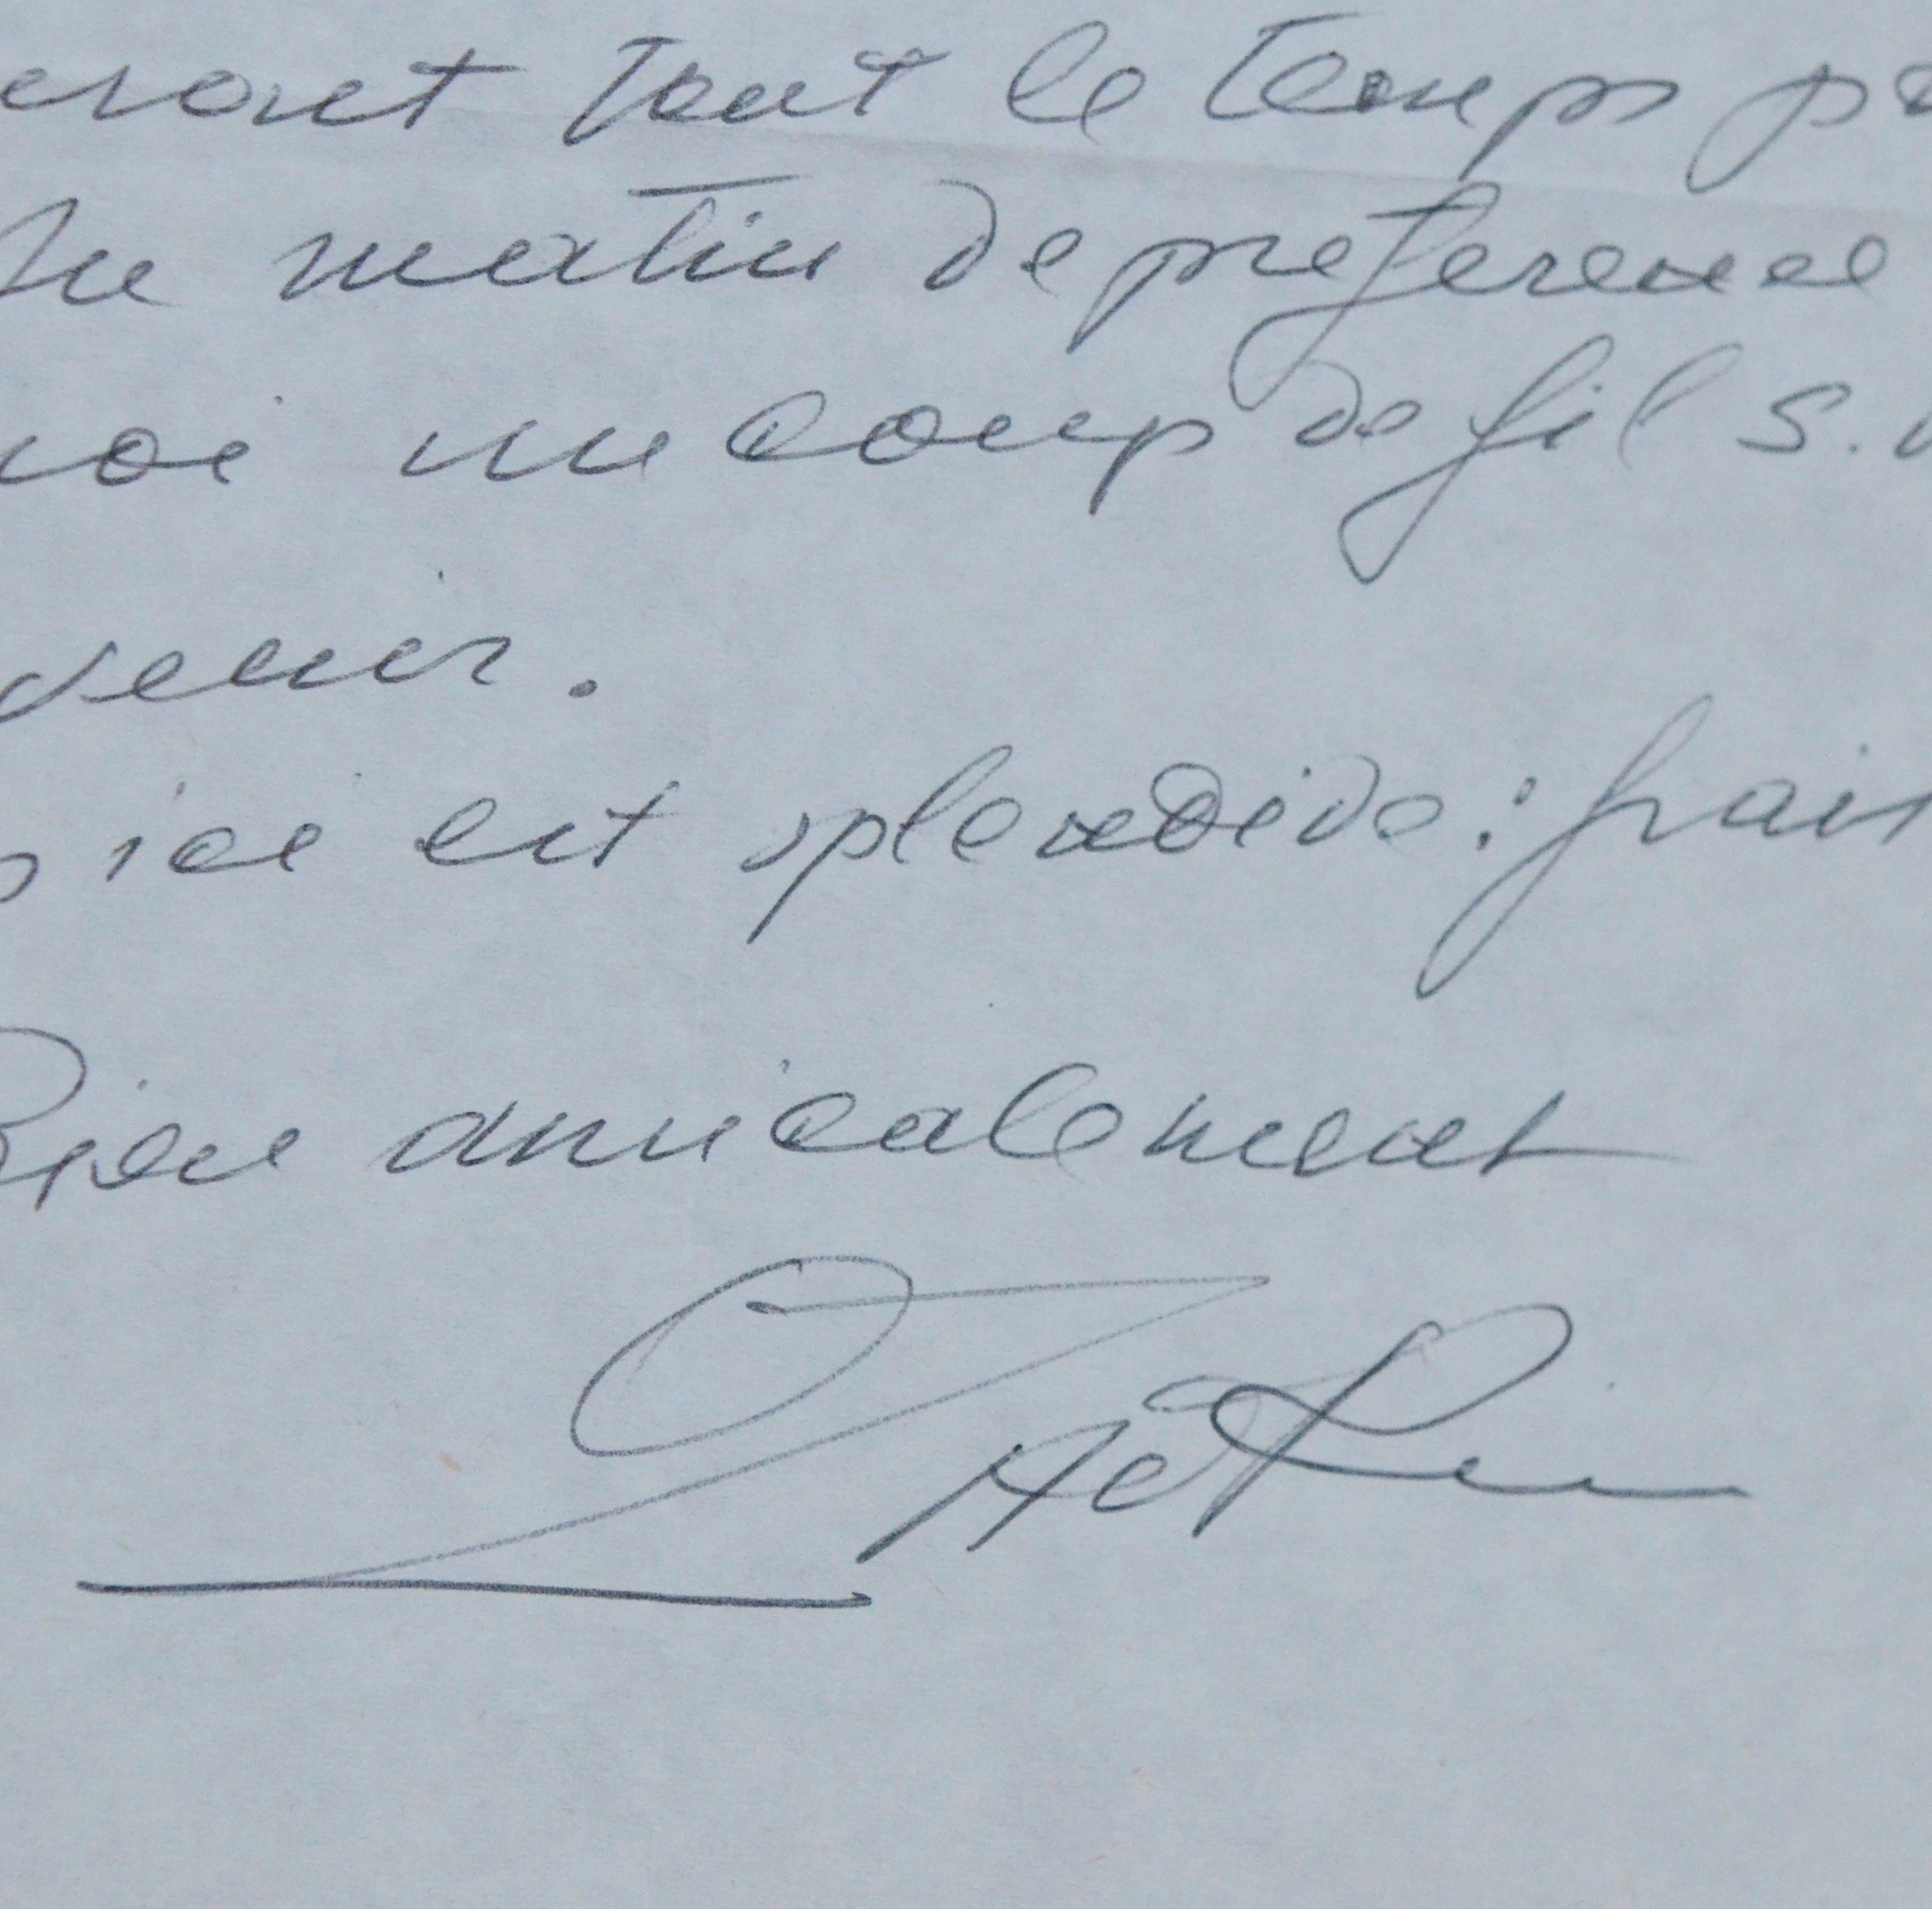 eront tout le temps
du matin de preference
moi un coup de fil s.
venir.
ici est splendide : frais
Bien amicalement